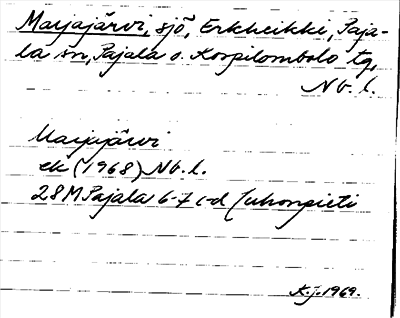 Marjajärvi, sjö, Erkheikki, Paja-
la sn, Pajala o. Korpilombolo tg,
Nb. l.
Marjajärvi
ek (1968) Nb. l.
28M Pajala 6-7 c-d Juhonpieti
K.j. 1969.